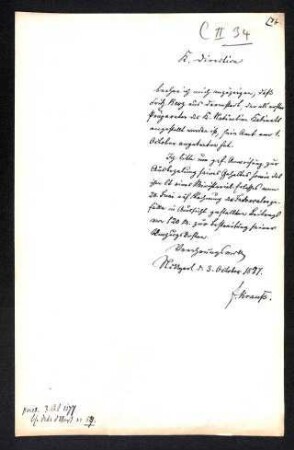 C II 34
K. Direction
beehre ich mich anzuzeigen, daß
Fritz Berg aus, der als erster
Präparator des K. Naturalien Cabinets
angestellt wurde ist, sein Amt am 1.
October angetreten hat.
Ich bitte um gef. Anweisung zur
Ausbezahlung seines Gehaltes sowie des
ihm lt eines Ministerial Erlasses vom
20. Juni auf Rechnung der
in Aussicht gestellten Beitrags
von 120 M. zur Bestreitung seiner
Umzugskosten
Verehrungsvoll
Stuttgart d. 3. October 1891.
F. Krauß.